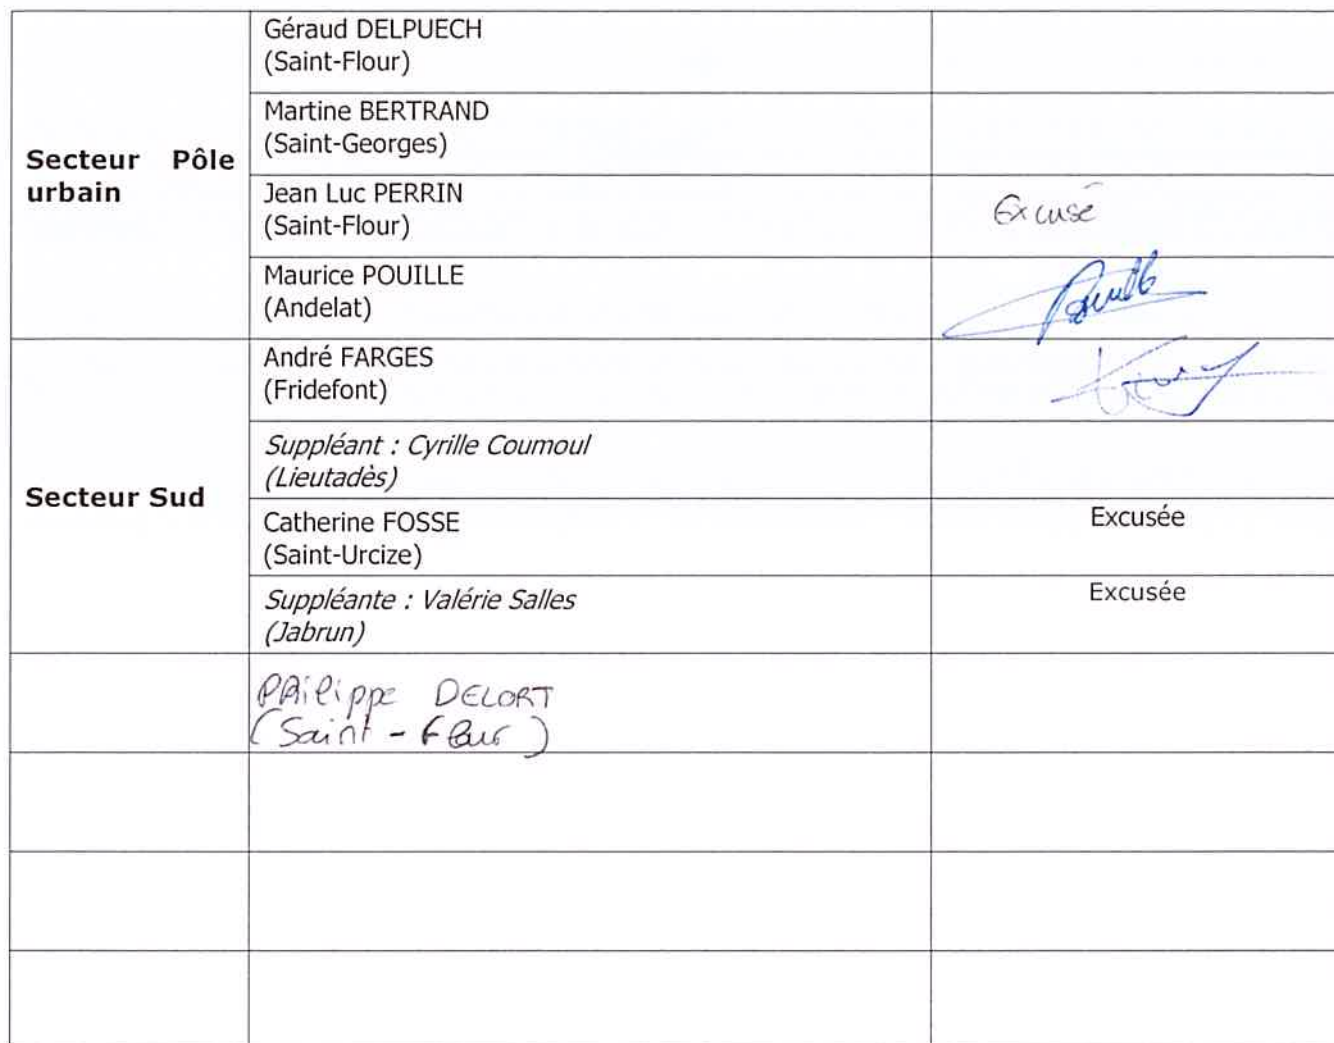 Géraud DELPUECH
(Saint-Flour)
Martine BERTRAND
(Saint-Georges)
Secteur Pôle
urbain
Jean Luc PERRIN
(Saint-Flour)
Excusé
Maurice POUILLE
(Andelat)
André FARGES
(Fridefont)
Suppléant : Cyrille Coumoul
(Lieutadès)
Secteur Sud
Catherine FOSSE
(Saint-Urcize)
Excusée
Suppléante : Valérie Salles
(Jabrun)
Excusée
Philippe DELORT
(Saint-Flour)